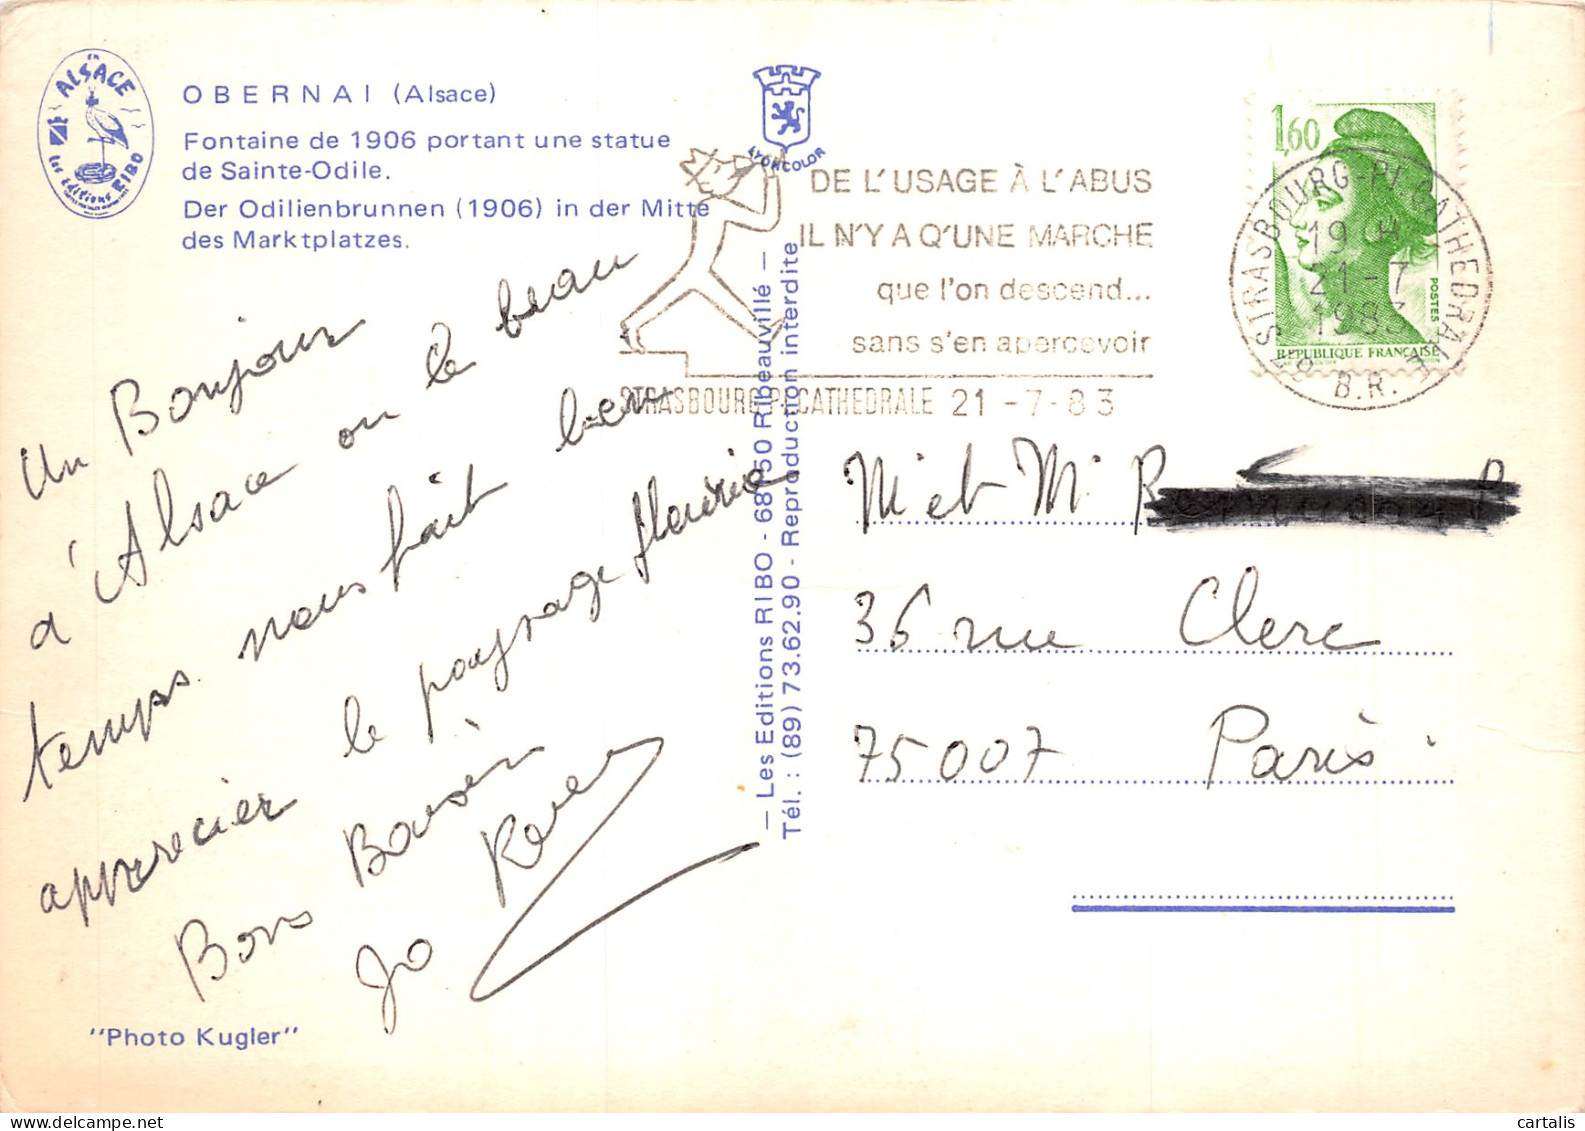 EN
ALSACE
Les éditions RIBO
OBERNAI (Alsace)
Fontaine de 1906 portant une statue
de Sainte-Odile.
Der Odilienbrunnen (1906) in der Mitte
des Marktplatzes.
LYONCOLOR
DE L'USAGE À L'ABUS
IL N'Y A Q'UNE MARCHE
que l'on descend...
sans s'en apercevoir
STRASBOURG Pl CATHEDRALE 21-7-83
1,60
POSTES
REPUBLIQUE FRANÇAISE
STRASBOURG-Pl CATHEDRALE
19 H
21-7
1983
67 B.R.
Un Bonjour
d'Alsace ou le beau
temps nous fait bien
apprecier le paysage fleurie
Bons Baisers
Jo
— Les Editions RIBO - 68150 Ribeauvillé —
Tél. : (89) 73.62.90 - Reproduction interdite
M et M. R
36 rue Clerc
75007 Paris.
"Photo Kugler"
cartalis